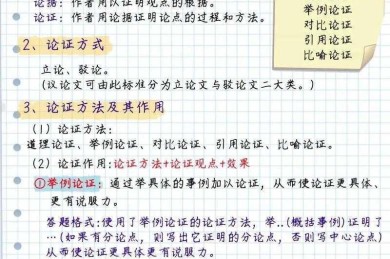 论据：作者用以证明观点的根据。
论证：作者用论据证明论点的过程和方法。
举例论证
对比论证
引用论证
比喻论证
2、论证方式
立论、驳论。
(议论文可由此标准分为立论文与驳论文二大类。)
3、论证方法及其作用
(1) 论证方法：
道理论证、举例论证、对比论证、引用论证、比喻论证。
(2) 论证作用：论证方法+论证观点+效果
①举例论证：通过举具体的事例加以论证，从而使论证更具体、
更有说服力。
答题格式：使用了举例论证的论证方法，举..(概括事例)证明了
…(如果有分论点，则写出它证明的分论点，否则写中心论点)
从而使论证更具体更有说服力。